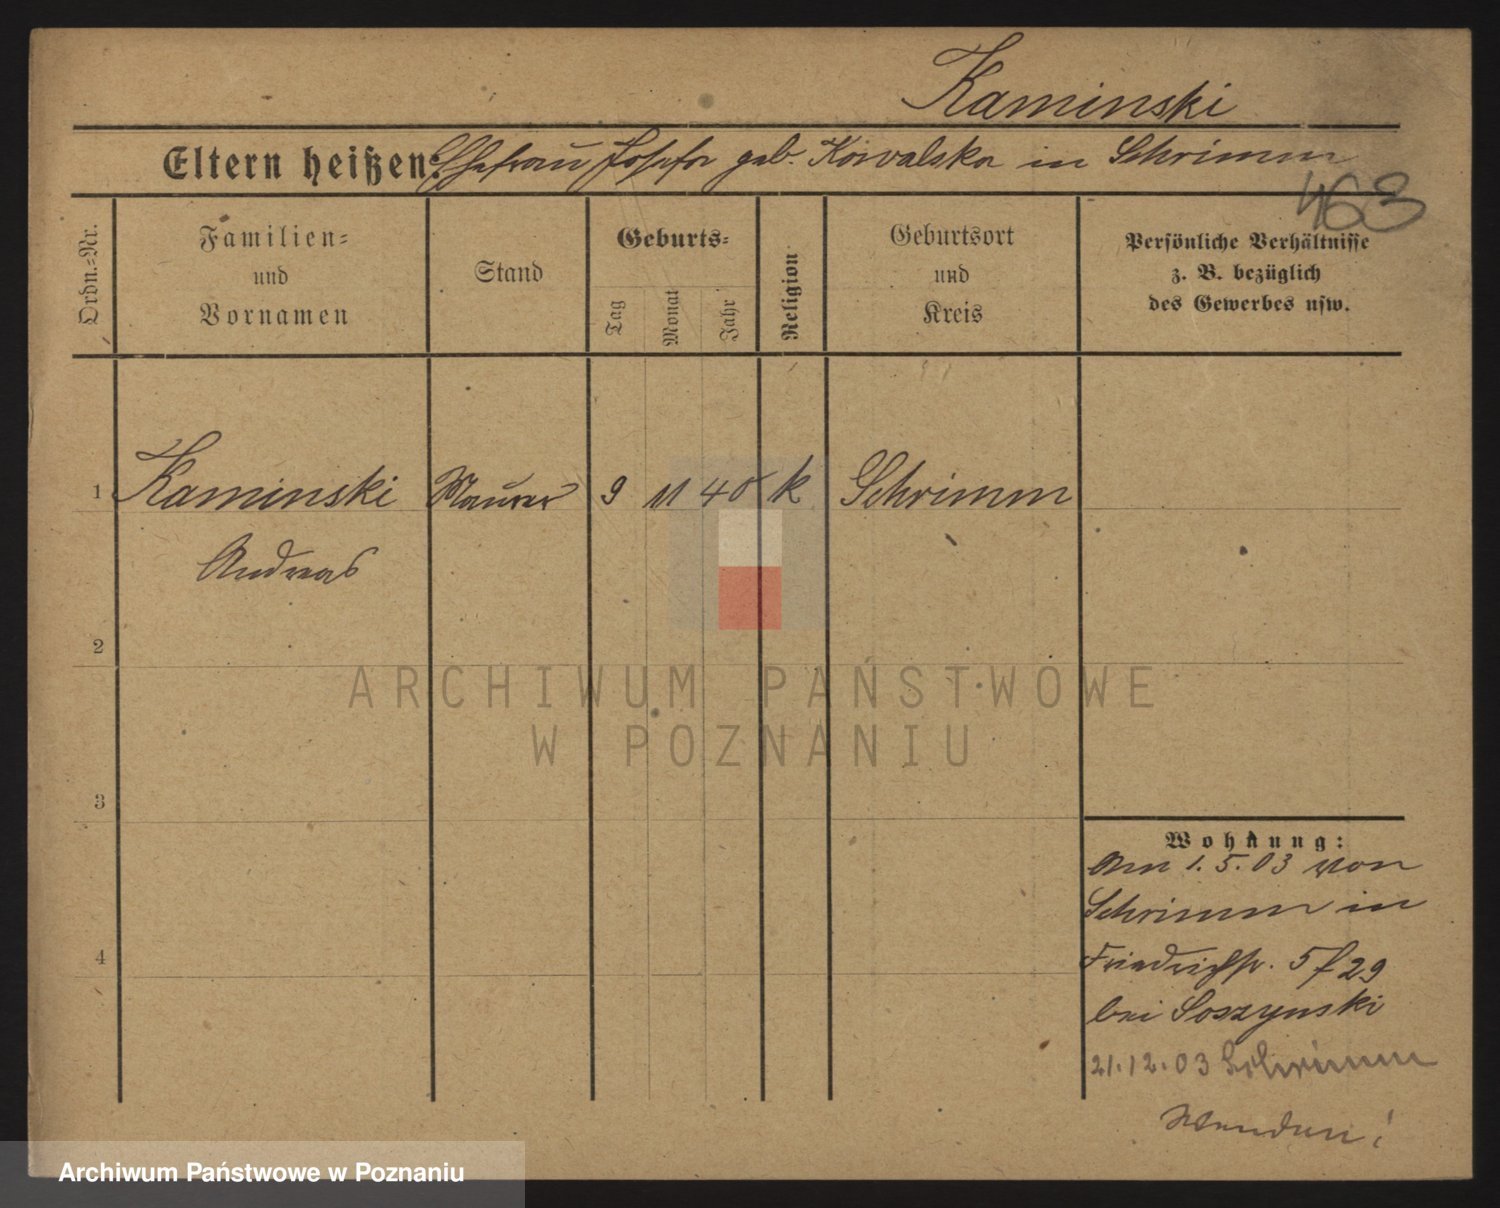 Kaminski
Eltern heißen: Ehefrau Josefa geb. Kowalska in Schrimm
463
Ordn.-Nr.
Familien-
und
Vornamen
Stand
Geburts-
Tag
Monat
Jahr
Religion
Geburtsort
und
Kreis
Persönliche Verhältnisse
z. B. bezüglich
des Gewerbes usw.
1 Kaminski Maurer 9 11 40 k Schrimm
Andreas
2
3
4
Wohnung:
Am 1.5.03 von
Schrimm in
Friedrichstr. 5 f 29
bei Soszynski
21.12.03 Schrimm
Wenden!
ARCHIWUM PAŃSTWOWE
W POZNANIU
Archiwum Państwowe w Poznaniu